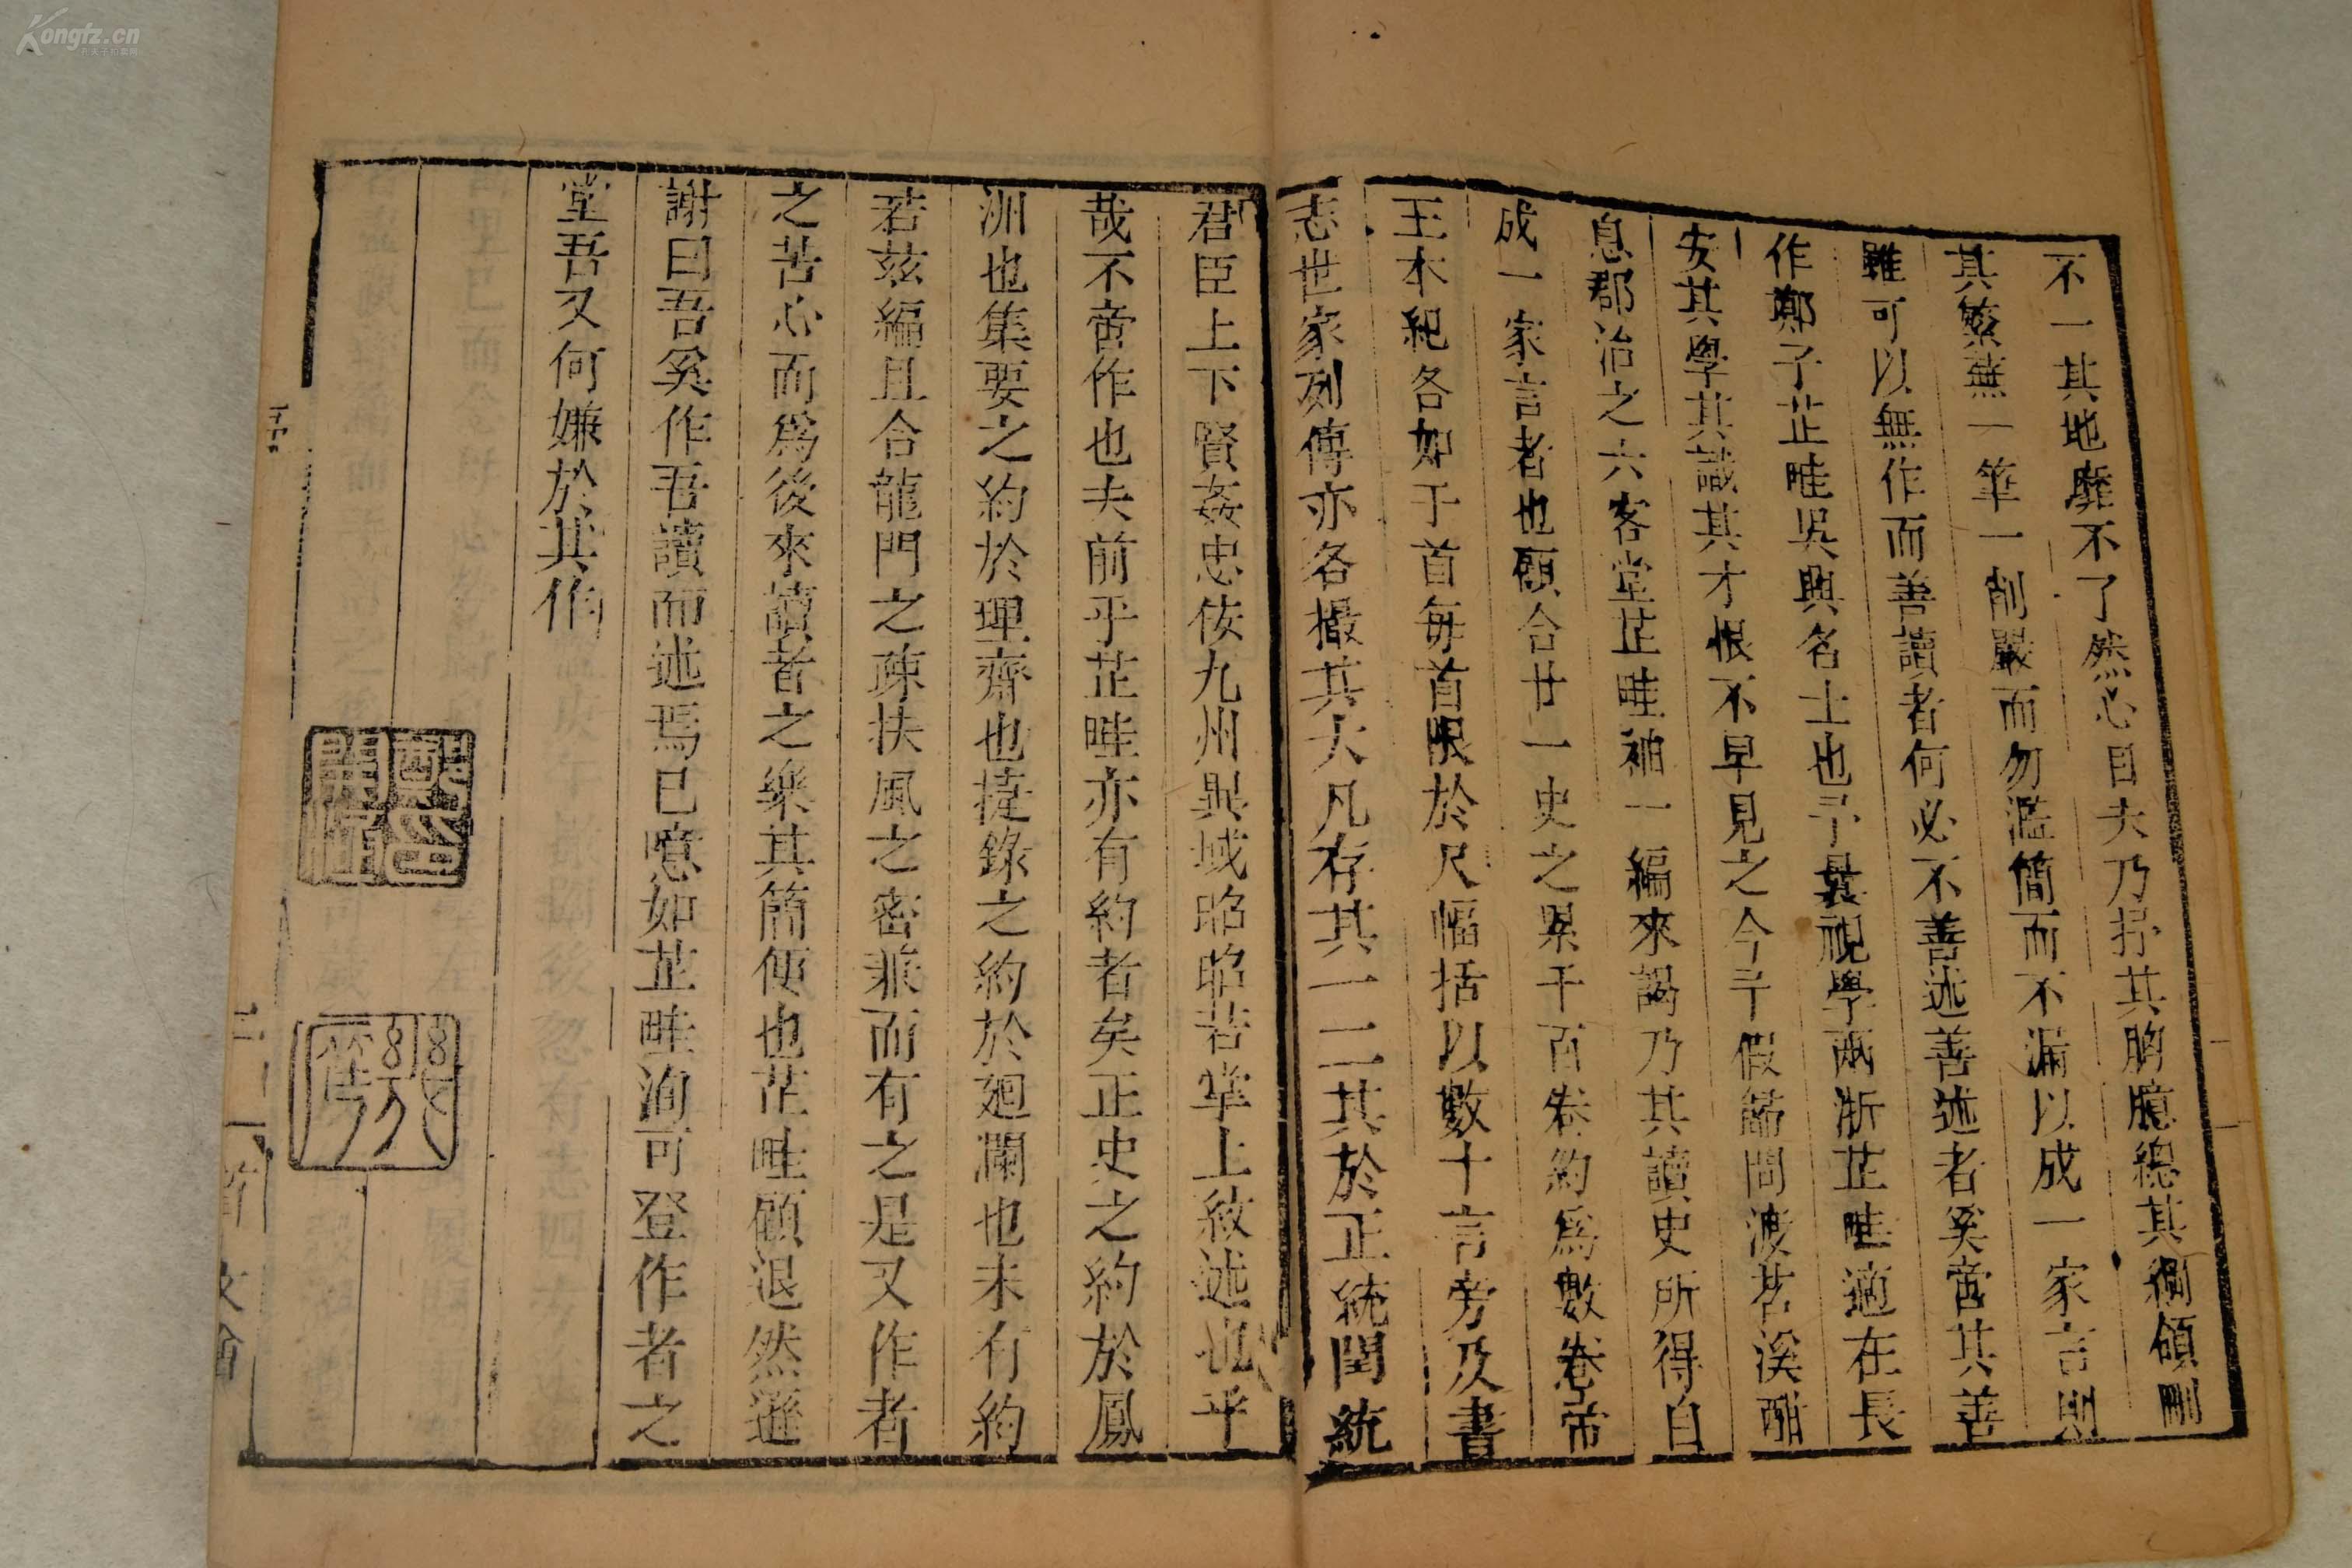 不一其地靡不了然心目夫乃抒其胸臆總其綱領刪
其繁蕪一筆一削嚴而勿濫簡而不漏以成一家言則
雖可以無作而善讀者何必不善述善述者奚啻其善
作鄭子芷畦吳興名士也予曩視學兩浙芷畦適在長
安其學其識其才恨不早見之今予假節問渡苕溪醋
息郡治之六客堂芷畦袖一編來謁乃其讀史所得自
成一家言者也顧合廿一史之累千百卷約爲數卷帝
王本紀各如干首每首限於尺幅括以數十言旁及書
志世家列傳亦各撮其大凡存其一二其於正統閏統
君臣上下賢姦忠佞九州異域昭昭若掌上紋述也乎
哉不啻作也夫前乎芷畦亦有約者矣正史之約於鳳
洲也集要之約於理齋也捷錄之約於廻瀾也未有約
若茲編且合龍門之疎扶風之密兼而有之是又作者
之苦心而爲後來讀者之樂其簡便也芷畦顧退然遜
謝曰吾奚作吾讀而述焉已噫如芷畦洵可登作者之
堂吾又何嫌於其作
Kongfz.cn